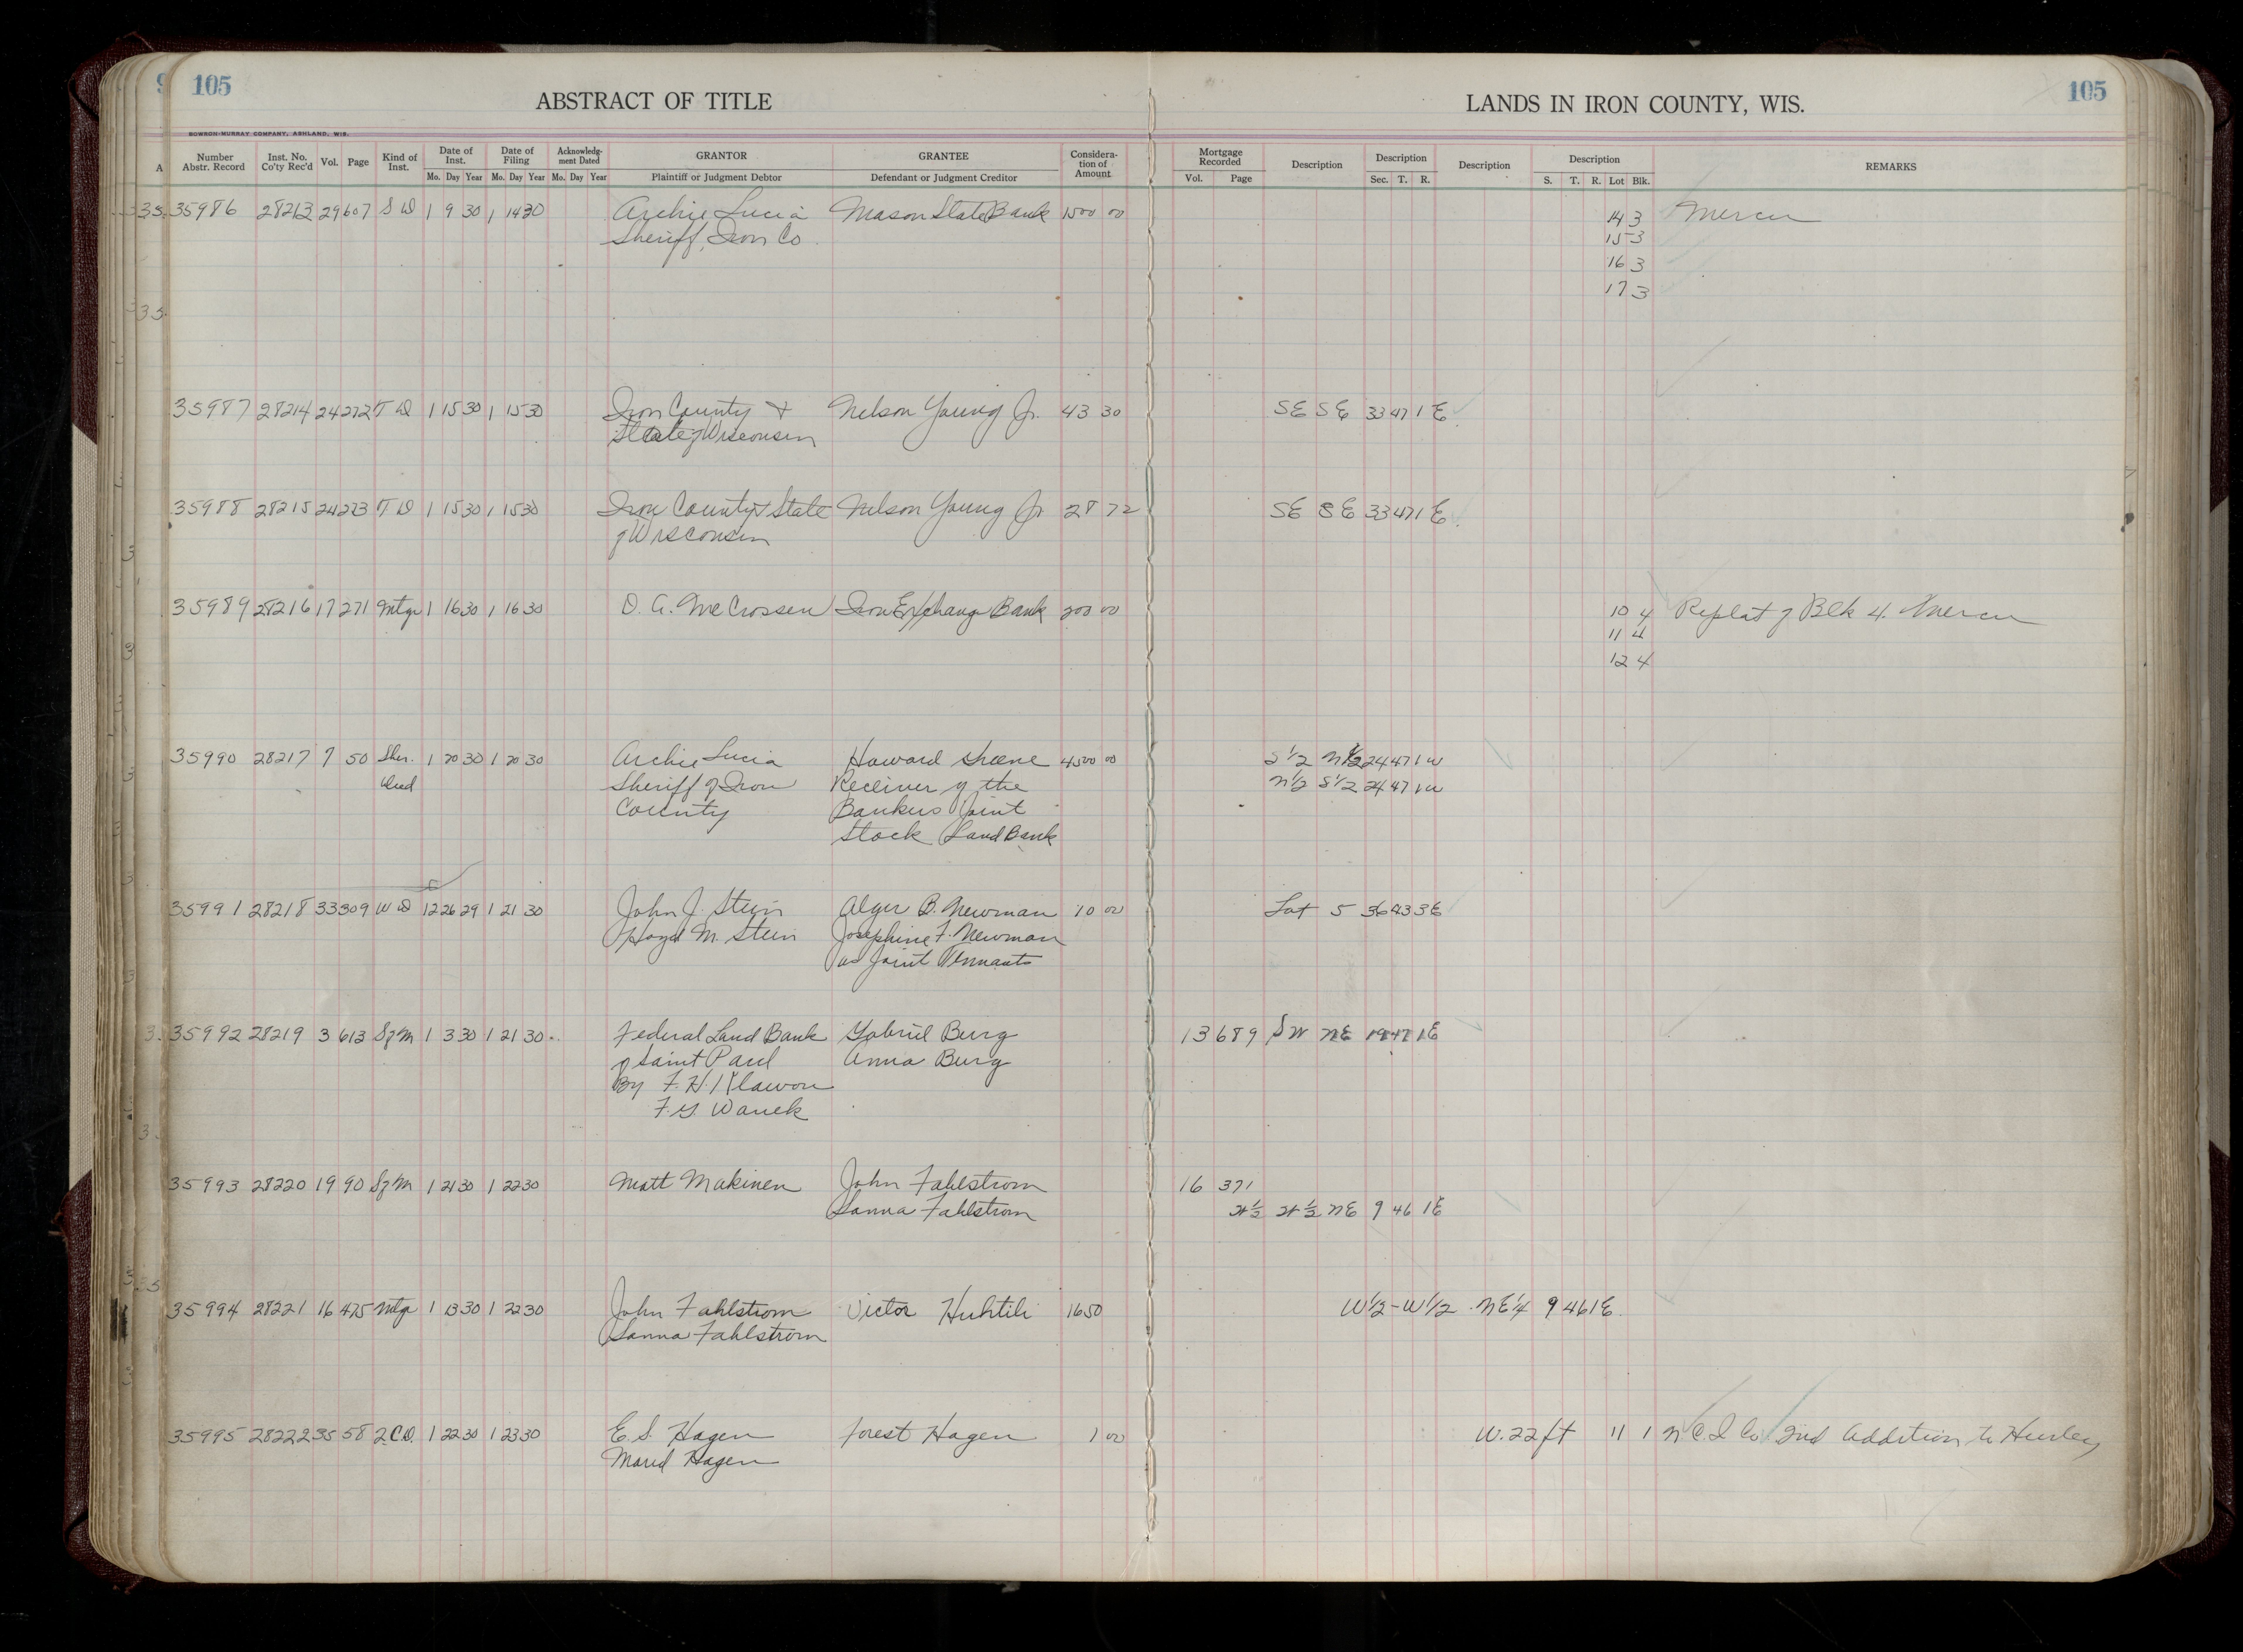 105
ABSTRACT OF TITLE
LANDS IN IRON COUNTY, WIS.
105
BOWRON-MURRAY COMPANY, ASHLAND, WIS.
Number Abstr. Record Inst. No. Co'ty Rec'd Vol. Page Kind of Inst. Date of Inst. Mo. Day Year Date of Filing Mo. Day Year Acknowledgment Dated Mo. Day Year GRANTOR Plaintiff or Judgment Debtor GRANTEE Defendant or Judgment Creditor Consideration of Amount Mortgage Recorded Vol. Page Description Description Sec. T. R. Description Description S. T. R. Lot Blk. REMARKS
35986 28213 29 607 S D 1 9 30 1 14 30 Archie Lucia Mason State Bank 1500 00 14 3 Mercer
Sheriff, Iron Co 15 3
16 3
17 3
35987 28214 24 272 T D 1 15 30 1 15 30 Iron County & Nelson Young Jr. 43 30 SE SE 33 47 1 E
State of Wisconsin
35988 28215 24 273 T D 1 15 30 1 15 30 Iron County & State Nelson Young Jr 28 72 SE SE 33 47 1 E
of Wisconsin
35989 28216 17 271 Mtge 1 16 30 1 16 30 D. A. McCrossen Iron Exchange Bank 200 00 10 4 Replat of Blk 4. Mercer
11 4
12 4
35990 28217 7 50 Sher. 1 20 30 1 20 30 Archie Lucia Howard Greene 4500 00 S 1/2 N 1/2 24 47 1 W
Deed Sheriff of Iron Receiver of the N 1/2 S 1/2 24 47 1 W
County Bankers Joint
Stock Land Bank
35991 28218 33 309 W D 12 26 29 1 21 30 John J. Stein Alger B. Newman 10 00 Lot 5 36 43 3 E
Hazel M. Stein Josephine F. Newman
as Joint Tennants
35992 28219 3 613 S of M 1 3 30 1 21 30 Federal Land Bank Gabriel Burg 13 689 SW NE 19 47 1 E
of Saint Paul Anna Burg
By F. H. Klawon
F. G. Wanek
35993 28220 19 90 S of M 1 21 30 1 22 30 Matt Makinen John Fahlstrom 16 371
Sanna Fahlstrom W 1/2 W 1/2 NE 9 46 1 E
35994 28221 16 475 Mtge 1 13 30 1 22 30 John Fahlstrom Victor Huhtili 1650 W 1/2 - W 1/2 NE 1/4 9 46 1 E.
Sanna Fahlstrom
35995 28222 35 58 2.C.D. 1 22 30 1 23 30 E. S. Hagen Forest Hagen 1 00 W. 22 ft 11 1 N C. I Co 2nd Addition to Hurley
Hagen